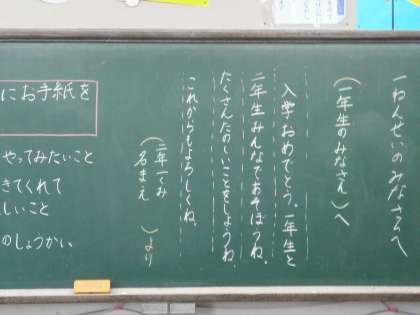 一ねんせいのみなさんへ
(一年生のみなさん)へ
入学おめでとう。一年生と
二年生みんなであそぼうね。
たくさんたのしいことをしようね。
これからもよろしくね。
(二年一くみ
名まえ)より
にお手紙を
やってみたいこと
きてくれて
しいこと
のしょうかい